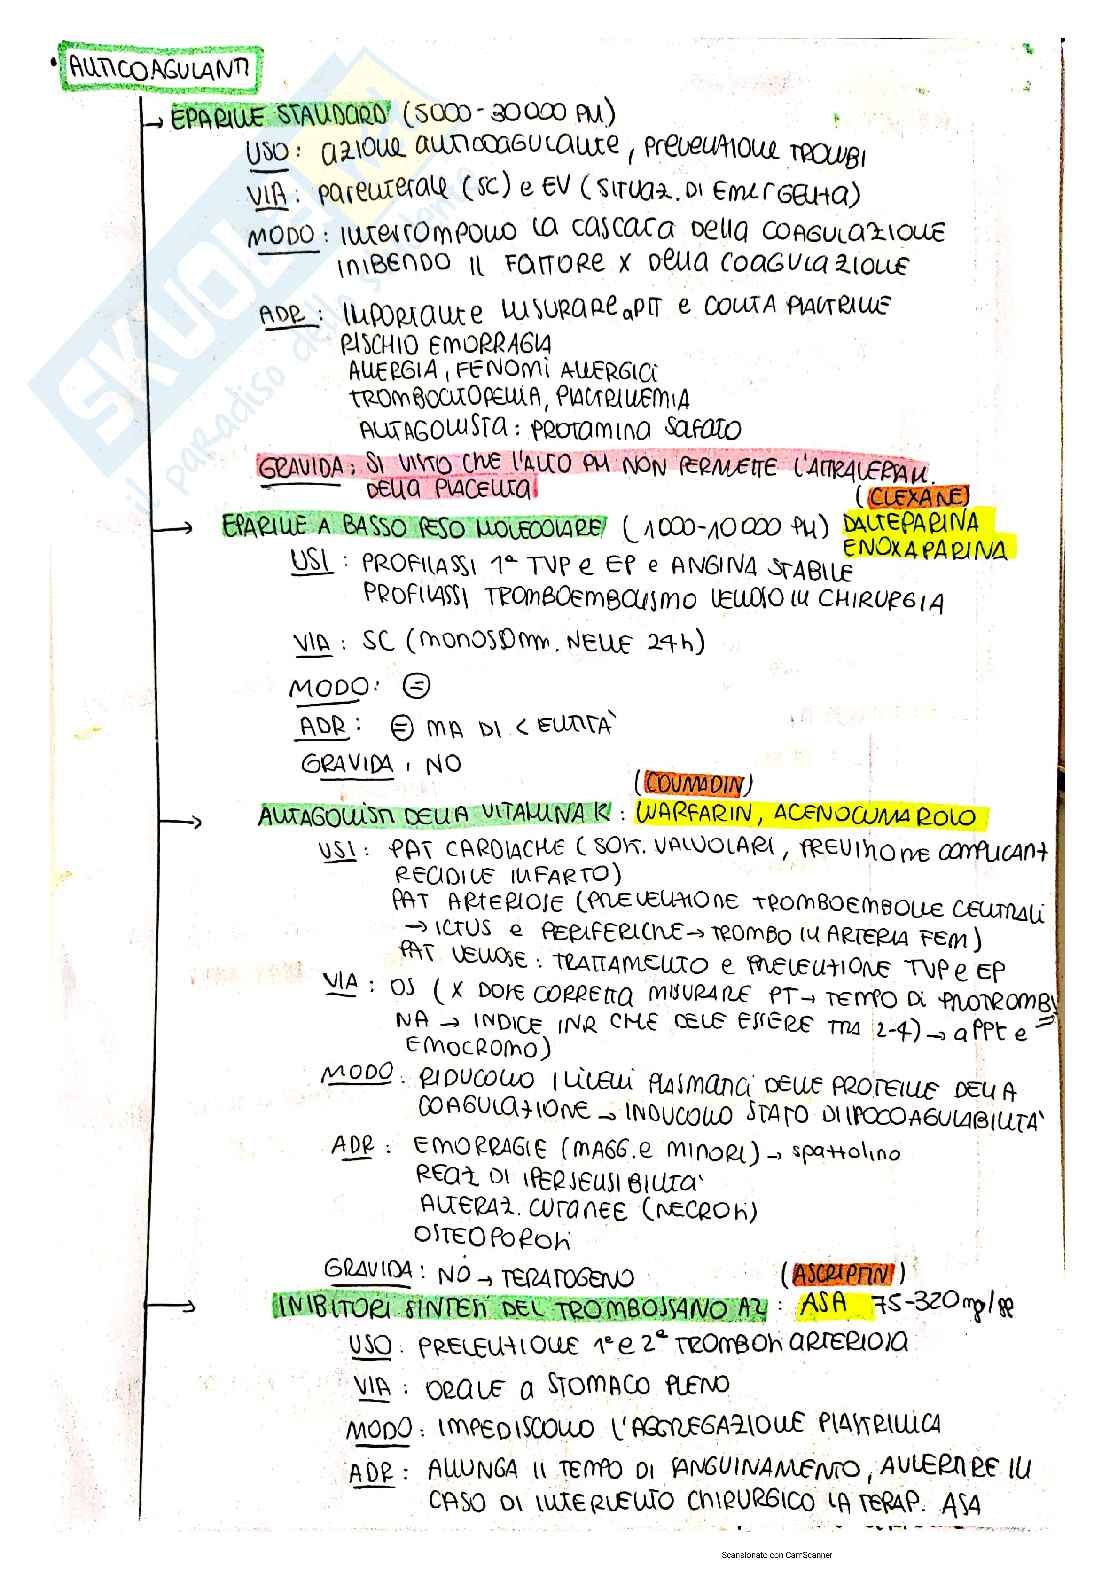 • ANTICOAGULANTI
→ EPARINE STANDARD (5000-30000 PM)
USO: azione anticoagulante, prevenzione trombi
VIA: parenterale (SC) e EV (situaz. di emergenza)
MODO: Interrompono la cascata della COAGULAZIONE
INIBENDO IL FATTORE X DELLA COAGULAZIONE
ADR: IMPORTANTE MISURARE aPTT e CONTA PIASTRINE
RISCHIO EMORRAGIA
ALLERGIA, FENOMI ALLERGICI
TROMBOCITOPENIA, PIASTRINEMIA
ANTAGONISTA: PROTAMINA SOLFATO
GRAVIDA: SI VISTO CHE l'ALTO PM NON PERMETTE L'ATTRAVERSAM.
DELLA PLACENTA
(CLEXANE)
→ EPARINE A BASSO PESO MOLECOLARE (1000-10000 PM) DALTEPARINA
ENOXAPARINA
USI: PROFILASSI 1ª TVP e EP e ANGINA STABILE
PROFILASSI TROMBOEMBOLISMO VENOSO IN CHIRURGIA
VIA: SC (monosomm. NELLE 24h)
MODO: =
ADR: = MA DI < ENTITÀ
GRAVIDA: NO
(COUMADIN)
→ ANTAGONISTI DELLA VITAMINA K: WARFARIN, ACENOCUMAROLO
USI: PAT CARDIACHE (SOST. VALVOLARI, PREVENZIONE COMPLICANZ
RECIDIVE INFARTO)
PAT ARTERIOSE (PREVENZIONE TROMBOEMBOLIE CENTRALI
→ ICTUS e PERIFERICHE → TROMBO IN ARTERIA FEM)
PAT VENOSE: TRATTAMENTO e PREVENZIONE TVP e EP
VIA: OS (X DOSE CORRETTA MISURARE PT → TEMPO DI PROTROMBI
NA → INDICE INR CHE DEVE ESSERE TRA 2-4) → aPPt e
EMOCROMO)
MODO: RIDUCONO I LIVELLI PLASMATICI DELLE PROTEINE DELLA
COAGULAZIONE → INDUCONO STATO DI IPOCOAGULABILITÀ
ADR: EMORRAGIE (MAGG. e MINORI) → spazzolino
REAZ DI IPERSENSIBILITÀ
ALTERAZ. CUTANEE (NECROSI)
OSTEOPOROSI
GRAVIDA: NO → TERATOGENO
(ASCRIPTIN)
→ INIBITORI SINTESI DEL TROMBOSSANO A2: ASA 75-320mg/gg
USO: PREVENZIONE 1ª e 2ª TROMBOSI ARTERIOSA
VIA: ORALE a STOMACO PIENO
MODO: IMPEDISCONO L'AGGREGAZIONE PIASTRINICA
ADR: ALLUNGA IL TEMPO DI SANGUINAMENTO, AVVERTIRE IN
CASO DI INTERVENTO CHIRURGICO LA TERAP. ASA
SKUOLA
il paradiso dello studente
Scansionato con CamScanner